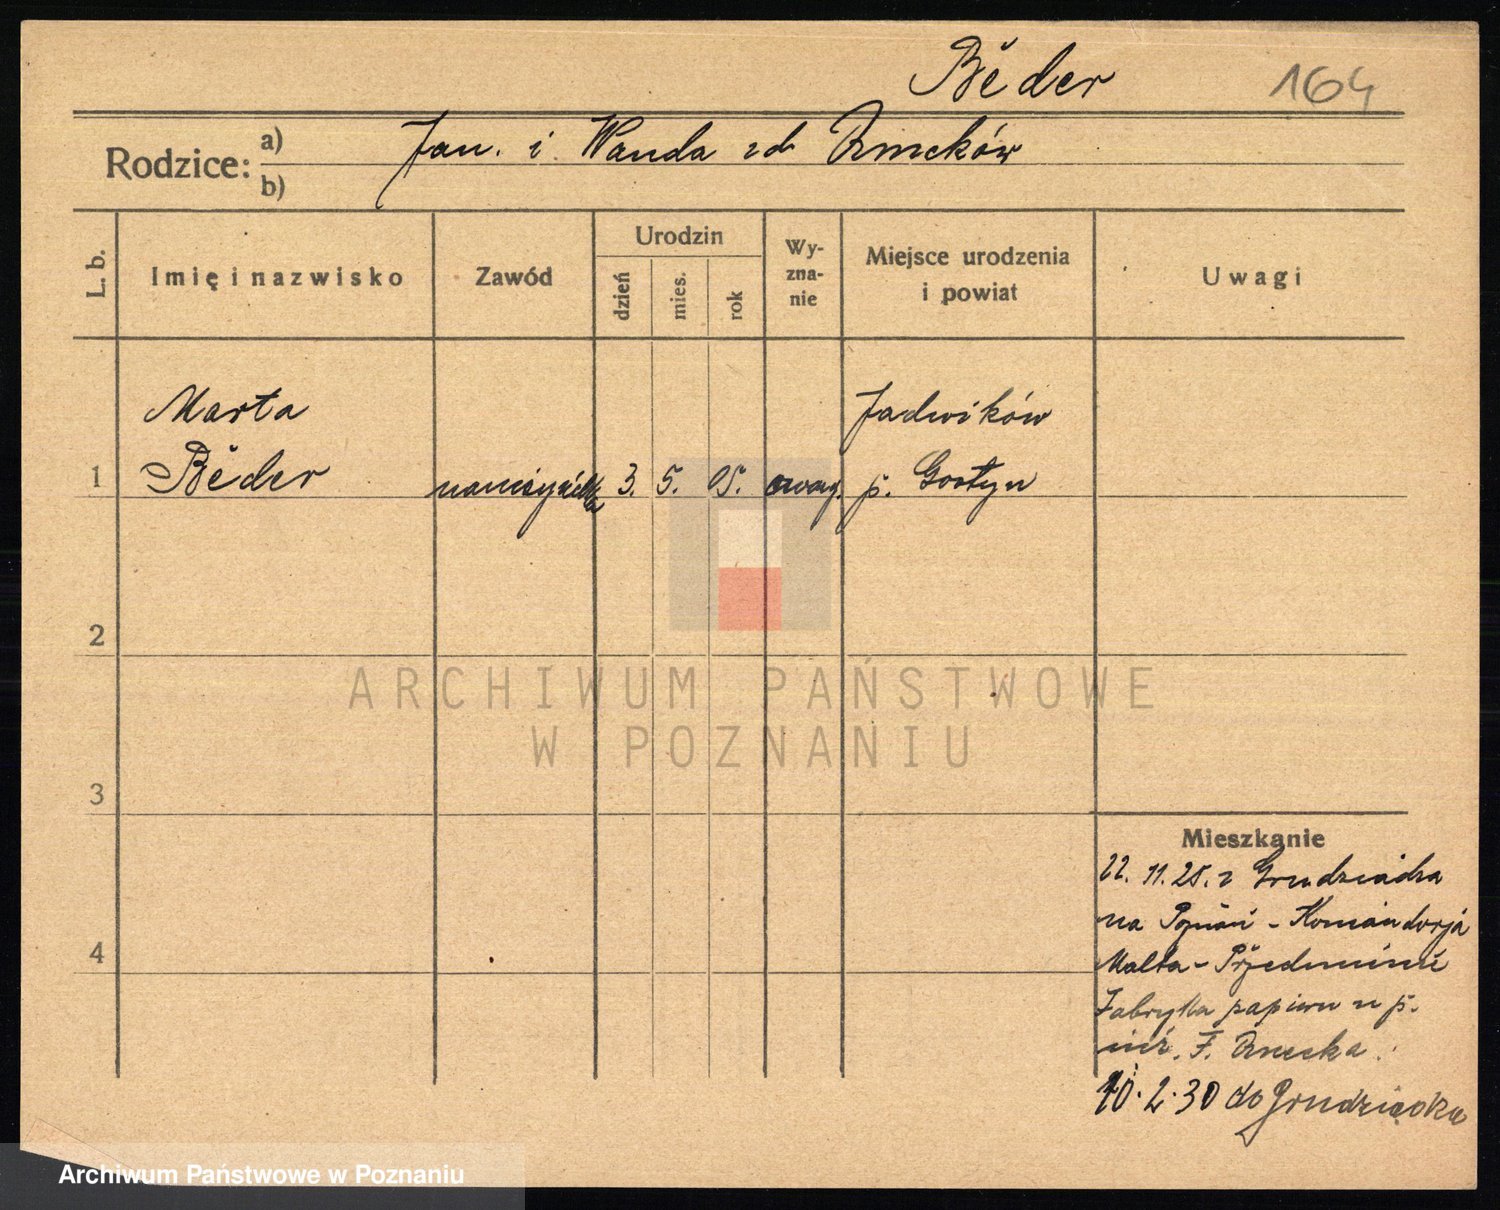 Bĕder 164
Rodzice: a) Jan. i Wanda zd
b)
L. b.
Imię i nazwisko
Zawód
Urodzin
dzień
mies.
rok
Wy-
zna-
nie
Miejsce urodzenia
i powiat
Uwagi
Marta
Bĕder
1
3. 5. 05. ewang.
Jadwików
p. Gostyn
2
ARCHIWUM PAŃSTWOWE
W POZNANIU
3
4
Mieszkanie
22. 11. 25. z Grudziądza
na Poznań - Komandorja
Malta -
Fabryka papieru u p.
inż. F.
10.2.30 do Grudziądza
Archiwum Państwowe w Poznaniu